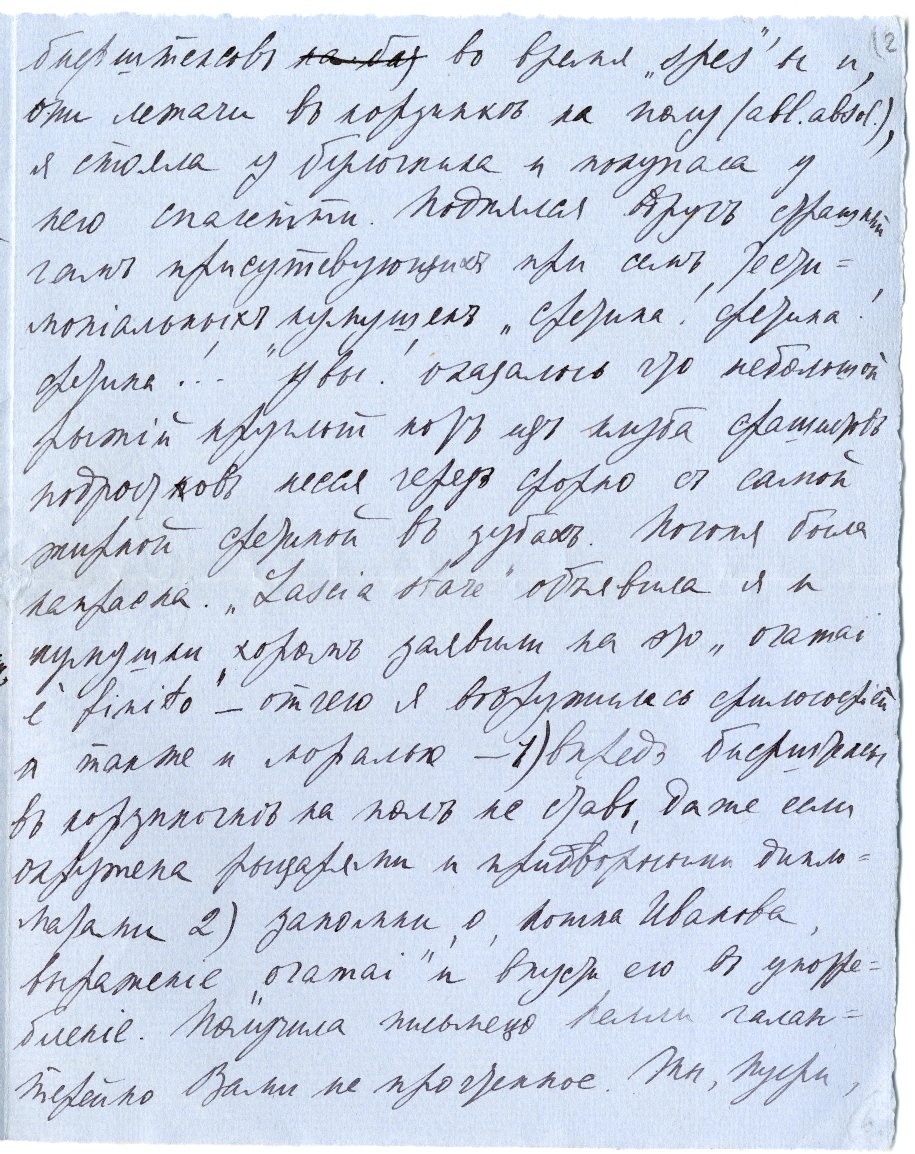 (2
бифштексовъ на баз во время „spes"ы и,
они лежачи въ корзинкѣ на полу (abl. absol.),
я стояла у бирючкина и покупала у
него спагетти. Поднялся вдругъ страшный
гамъ присутсвующихъ при семъ
кумушекъ „фетина! фетина!
фетина!.." Увы! оказалось что небольшой
рыжій круглый котъ изъ клуба фашистовъ
подростковъ несся черезъ форно съ самой
жирной фетиной въ зубахъ. Погоня была
напрасна. „Lascia stare" объявила я и
кумушки хоромъ заявили на это „ormai
è finito" – отчего я вооружилась философіей
а также и моралью – 1) впредь бифштексы
въ корзиночкѣ на полъ не ставь, даже если
окружена рыцарями и придворными дипло=
матами 2) запомни, о, кошка Иванова,
выраженіе „ormai" и впусти его въ употре=
бленіе. Получила письмецо галан=
терейно Вами не прочтенное. Ты,